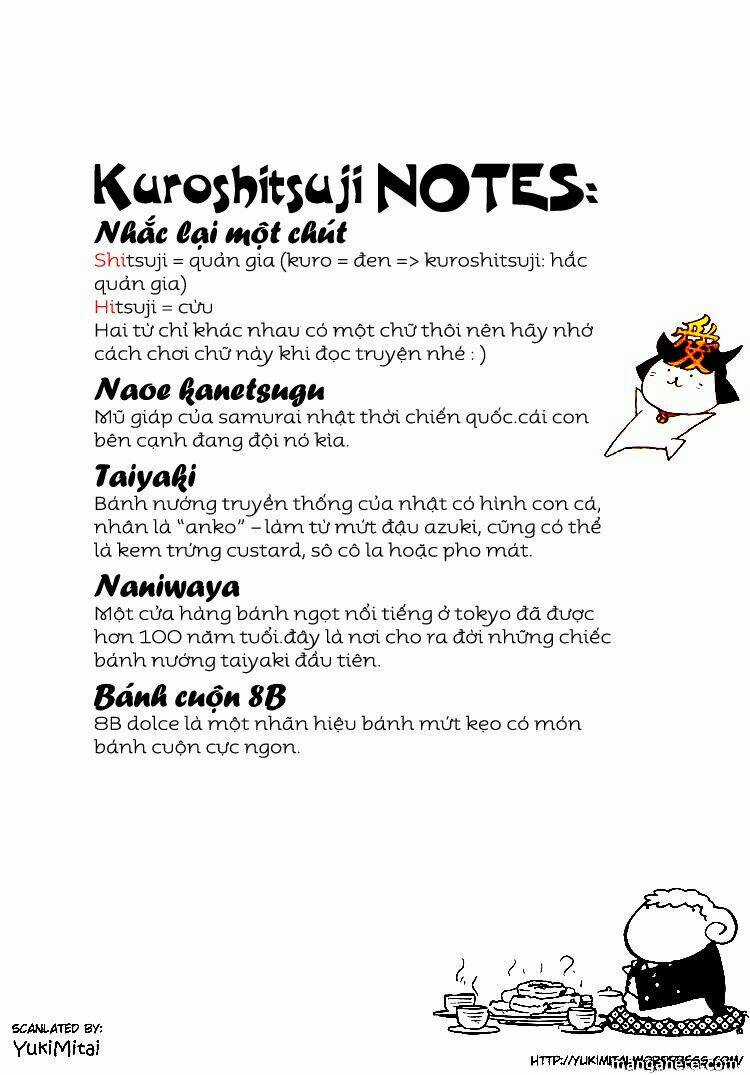 Kuroshitsuji NOTES:
Nhắc lại một chút
Shitsuji = quản gia (kuro = đen => kuroshitsuji: hắc
quản gia)
Hitsuji = cừu
Hai từ chỉ khác nhau có một chữ thôi nên hãy nhớ
cách chơi chữ này khi đọc truyện nhé : )
愛
Naoe kanetsugu
Mũ giáp của samurai nhật thời chiến quốc.cái con
bên cạnh đang đội nó kìa.
Taiyaki
Bánh nướng truyền thống của nhật có hình con cá,
nhân là “anko” – làm từ mứt đậu azuki, cũng có thể
là kem trứng custard, sô cô la hoặc pho mát.
Naniwaya
Một cửa hàng bánh ngọt nổi tiếng ở tokyo đã được
hơn 100 năm tuổi.đây là nơi cho ra đời những chiếc
bánh nướng taiyaki đầu tiên.
Bánh cuộn 8B
8B dolce là một nhãn hiệu bánh mứt kẹo có món
bánh cuộn cực ngon.
SCANLATED BY:
YukiMitai
HTTP://YUKIMITAI.WORDPRESS.COM/
mangahere.com